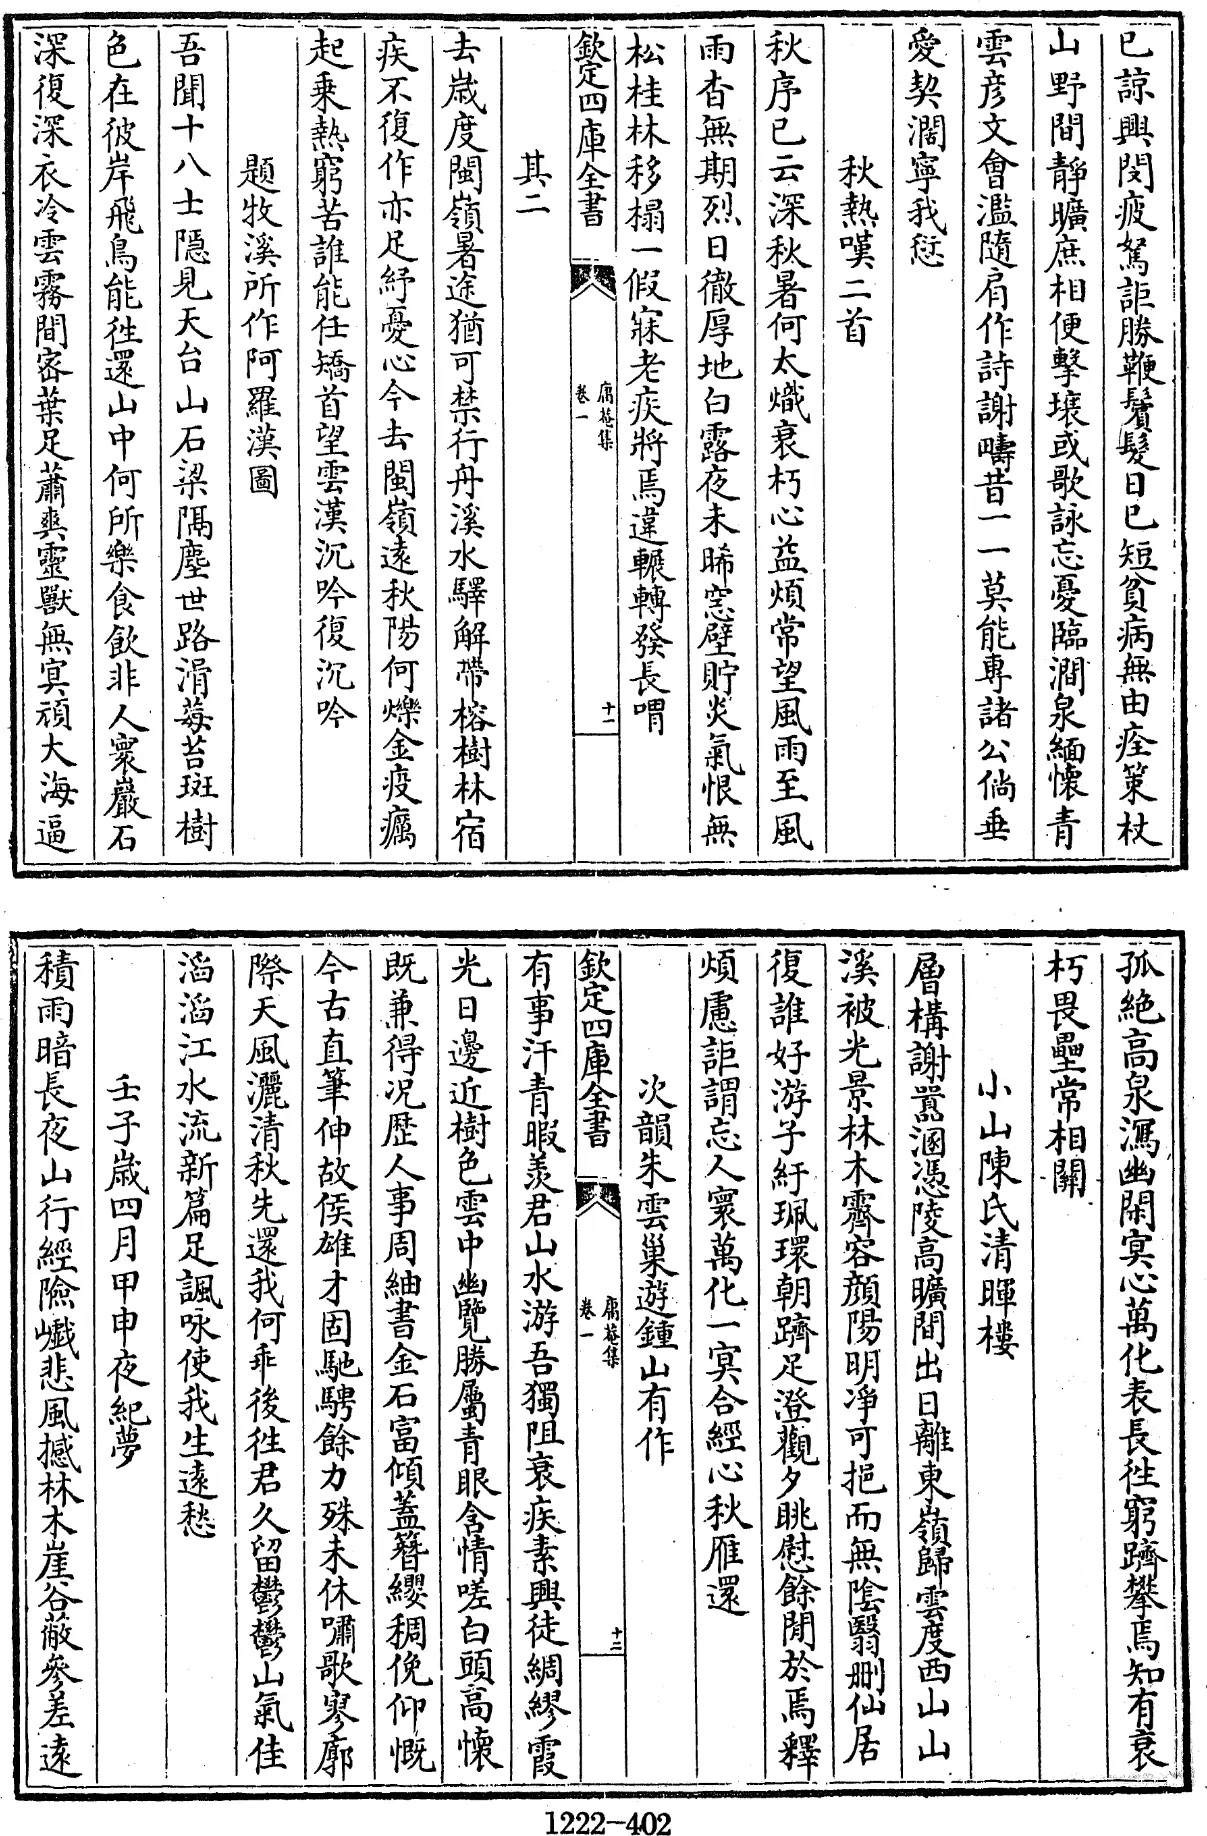 已諒興閔疲駑詎勝鞭鬢髮日已短貧病無由痊策杖
山野間靜曠庶相便擊壤或歌詠忘憂臨澗泉緬懷青
雲彦文會濫隨肩作詩謝疇昔一一莫能專諸公倘垂
愛契濶寧我愆
秋熱嘆二首
秋序已云深秋暑何太熾衰朽心益煩常望風雨至風
雨杳無期烈日徹厚地白露夜未晞窓壁貯炎氣恨無
松桂林移榻一假寐老疾將焉違輾轉發長喟
欽定四庫全書
庸菴集
卷一
十一
其二
去歳度閩嶺暑途猶可禁行舟溪水驛解帶榕樹林宿
疾不復作亦足紓憂心今去閩嶺遠秋陽何爍金疫癘
起乗熱窮苦誰能任矯首望雲漢沉吟復沉吟
題牧溪所作阿羅漢圖
吾聞十八士隱見天台山石梁隔塵世路滑莓苔斑樹
色在彼岸飛鳥能徃還山中何所樂食飲非人寰巖石
深復深衣冷雲霧間宻葉足蕭爽靈獸無冥頑大海逼
孤絶高泉瀉幽閑冥心萬化表長徃窮躋攀焉知有衰
朽畏壘常相關
小山陳氏清暉樓
層構謝嚣溷憑陵高曠間出日離東嶺歸雲度西山山
溪被光景林木霽容顔陽明凈可挹而無陰翳刪仙居
復誰好游子紆珮環朝躋足澄觀夕眺慰餘閒於焉釋
煩慮詎謂忘人寰萬化一冥合經心秋雁還
次韻朱雲巢遊鍾山有作
欽定四庫全書
庸菴集
卷一
十二
有事汗青暇羨君山水游吾獨阻衰疾素興徒綢繆霞
光日邊近樹色雲中幽覽勝屬青眼含情嗟白頭高懷
既兼得况歴人事周紬書金石富傾蓋簪纓稠俛仰慨
今古直筆伸故侯雄才固馳騁餘力殊未休嘯歌寥廓
際天風灑清秋先還我何乖後徃君久留鬱鬱山氣佳
滔滔江水流新篇足諷咏使我生遠愁
壬子歳四月甲申夜紀夢
積雨暗長夜山行經險巇悲風撼林木崖谷蔽參差遠
1222-402